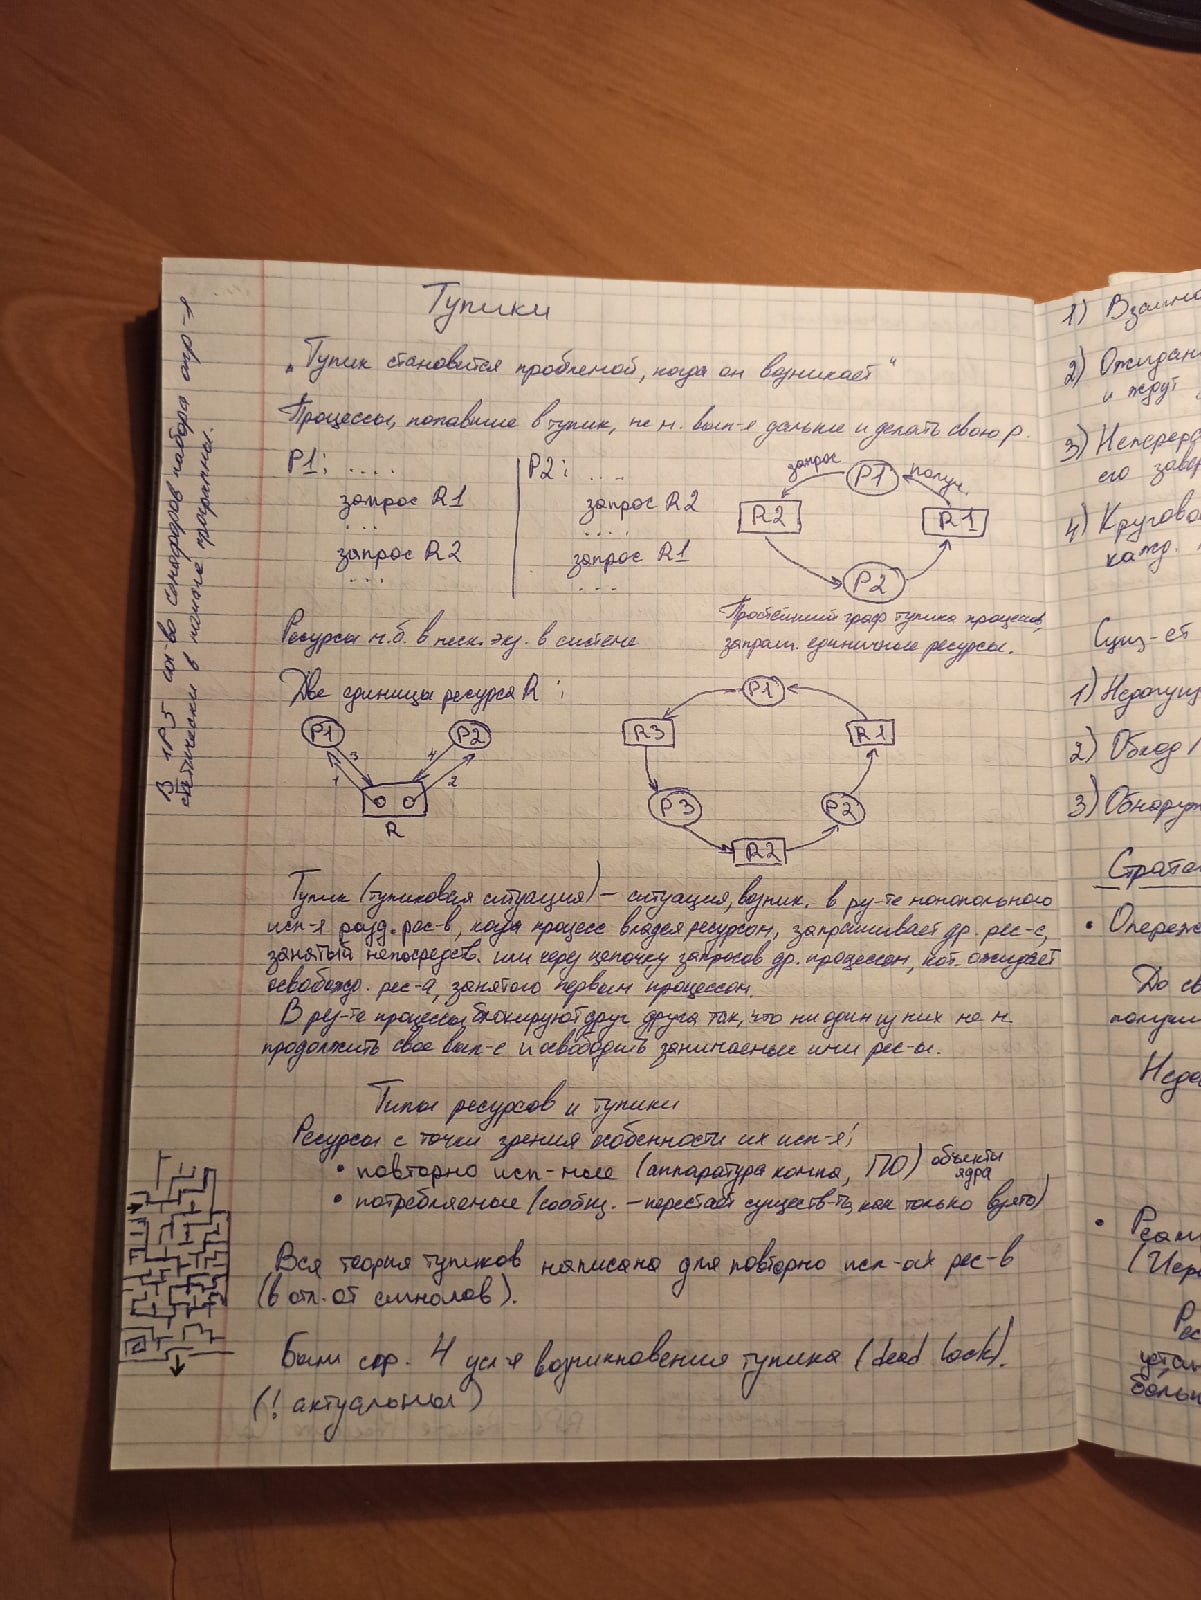 Тупики
„Тупик становится проблемой, когда он возникает“
Процессы, попавшие в тупик, не м. вып-я дальше и делать свою р.
P1: ....
запрос R1
...
запрос R2
...
P2: ...
запрос R2
....
запрос R1
...
запрос P1 получ.
R2 R1
P2
Простейший граф тупика процессов,
запраш. единичные ресурсы.
Ресурсы м.б. в неск. экз. в системе
Две единицы ресурса R:
P1 P2
1 3 4 2
R
P1
R3 R1
P3 P2
R2
Тупик (тупиковая ситуация) – ситуация, возник. в рез-те монопольного
исп-я разд. рес-в, когда процесс владея ресурсом, запрашивает др. рес-с,
занятый непосредств. или через цепочку запросов др. процессом, кот. ожидает
освобожд. рес-а, занятого первым процессом.
В рез-те процессы блокируют друг друга так, что ни один из них не м.
продолжить свое вып-е и освободить занимаемые ими рес-ы.
Типы ресурсов и тупики
Ресурсы с точки зрения особенности их исп-я:
• повторно исп-мые (аппаратура компа, ПО) объекты
ядра
• потребляемые (сообщ. – перестаёт существ-ть, как только взято)
Вся теория тупиков написана для повторно исп-ых рес-в
(в отл. от сигналов).
Были сфр. 4 усл-я возникновения тупика (dead lock).
(! актуальны)
В 1Р5 кол-во семафоров набора опр-я
статически в начале программы.
1) Взаимо
2) Ожидан
и ждут
3) Неперерв
его завер
4) Кругово
кажд.
Сущ-ет
1) Недопущ
2) Обход /
3) Обнаруж
Стратег
• Опереж
До св
получи
Недо
• Реали
(Иер
Рес
устан
больш